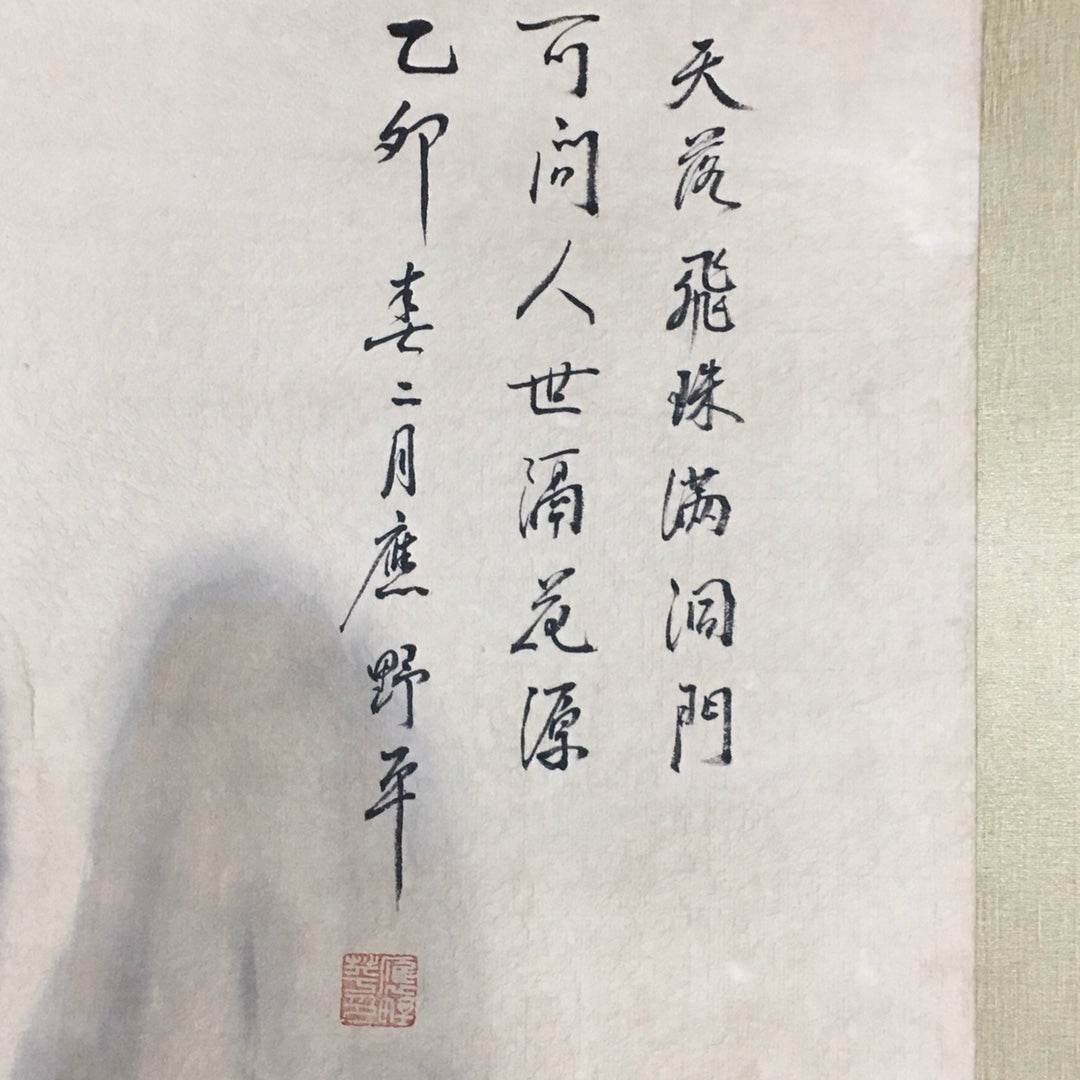 天落飛珠滿洞門
可問人世隔花源
乙卯春二月應野平